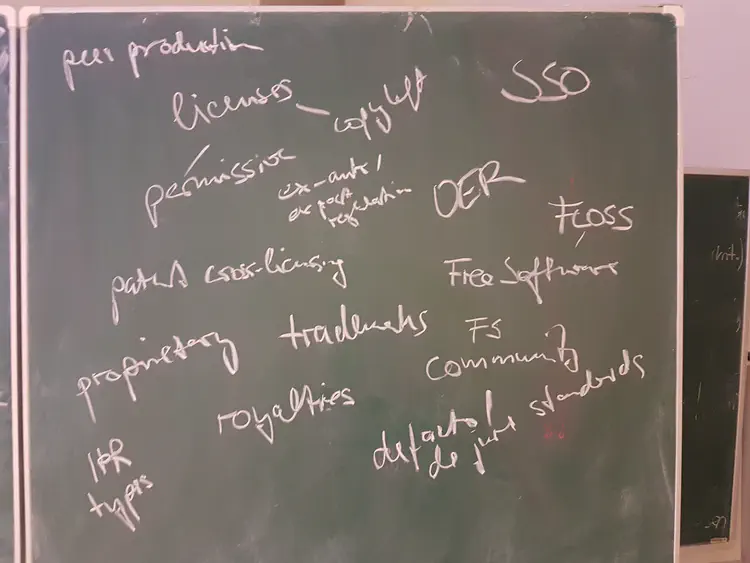 peer production
licenses – copyleft
SSO
permissive
ex-ante /
ex post
regulation
OER
FLOSS
patent cross-licensing
Free Software
proprietary
trademarks
FS
community
royalties
de facto /
de jure standards
IPR
types